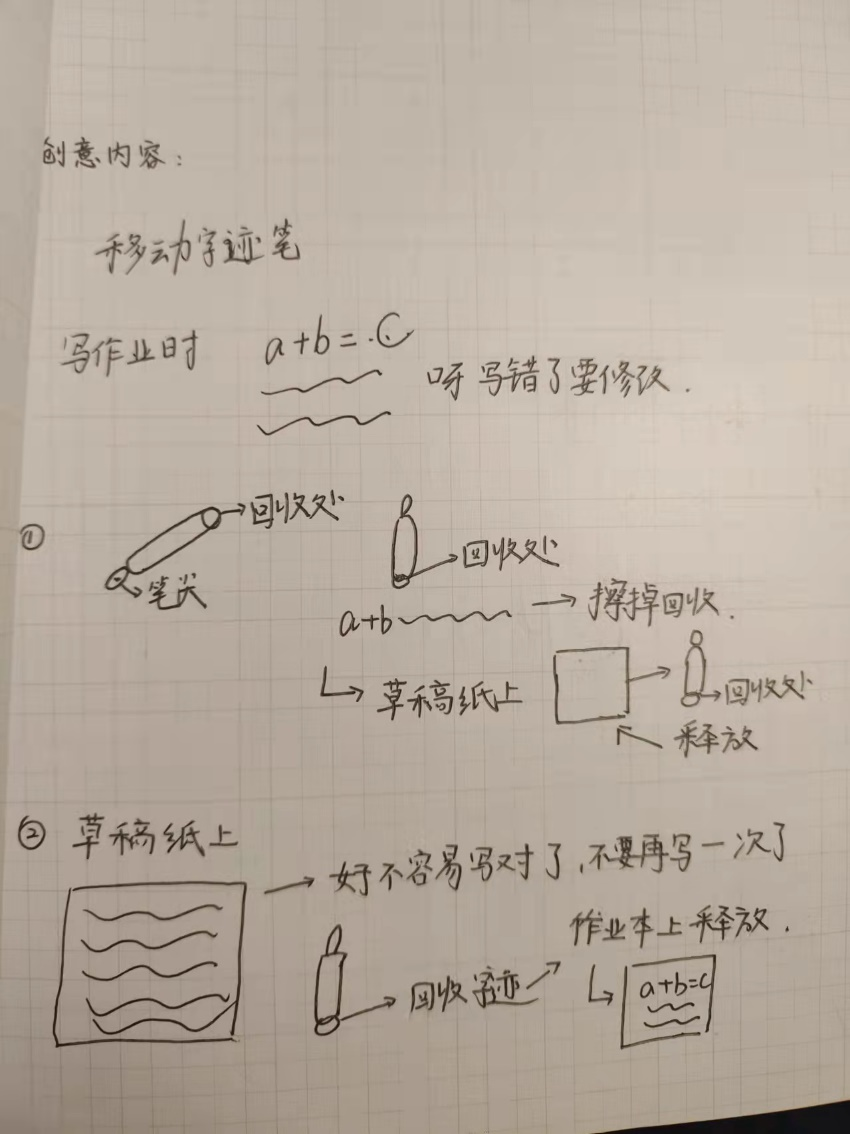 创意内容：
移动字迹笔
写作业时 a+b=.C
呀写错了要修改.
① 回收处
笔尖
回收处
a+b → 擦掉回收.
草稿纸上
回收处
释放
② 草稿纸上
→ 好不容易写对了,不要再写一次了
作业本上释放.
回收字迹
a+b=c